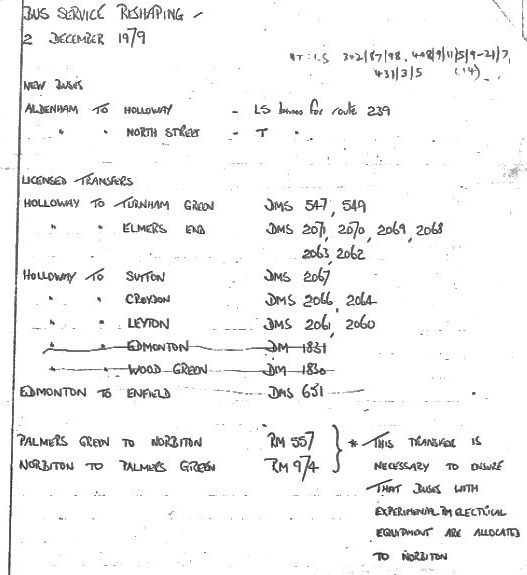 BUS SERVICE RESHAPING -
2 DECEMBER 1979
NEW BUSES
ALDENHAM TO HOLLOWAY - LS buses for route 239
" " NORTH STREET - T "
LICENSED TRANSFERS
HOLLOWAY TO TURNHAM GREEN DMS 547, 549
" " ELMERS END DMS 2071, 2070, 2069, 2068
2063, 2062
HOLLOWAY TO SUTTON DMS 2067
" " CROYDON DMS 2066, 2064
" " LEYTON DMS 2061, 2060
" " EDMONTON DM 1831
" " WOOD GREEN DM 1830
EDMONTON TO ENFIELD DMS 631
PALMERS GREEN TO NORBITON RM 557
NORBITON TO PALMERS GREEN RM 974
* THIS TRANSFER IS
NECESSARY TO ENSURE
THAT BUSES WITH
EXPERIMENTAL ELECTRICAL
EQUIPMENT ARE ALLOCATED
TO NORBITON